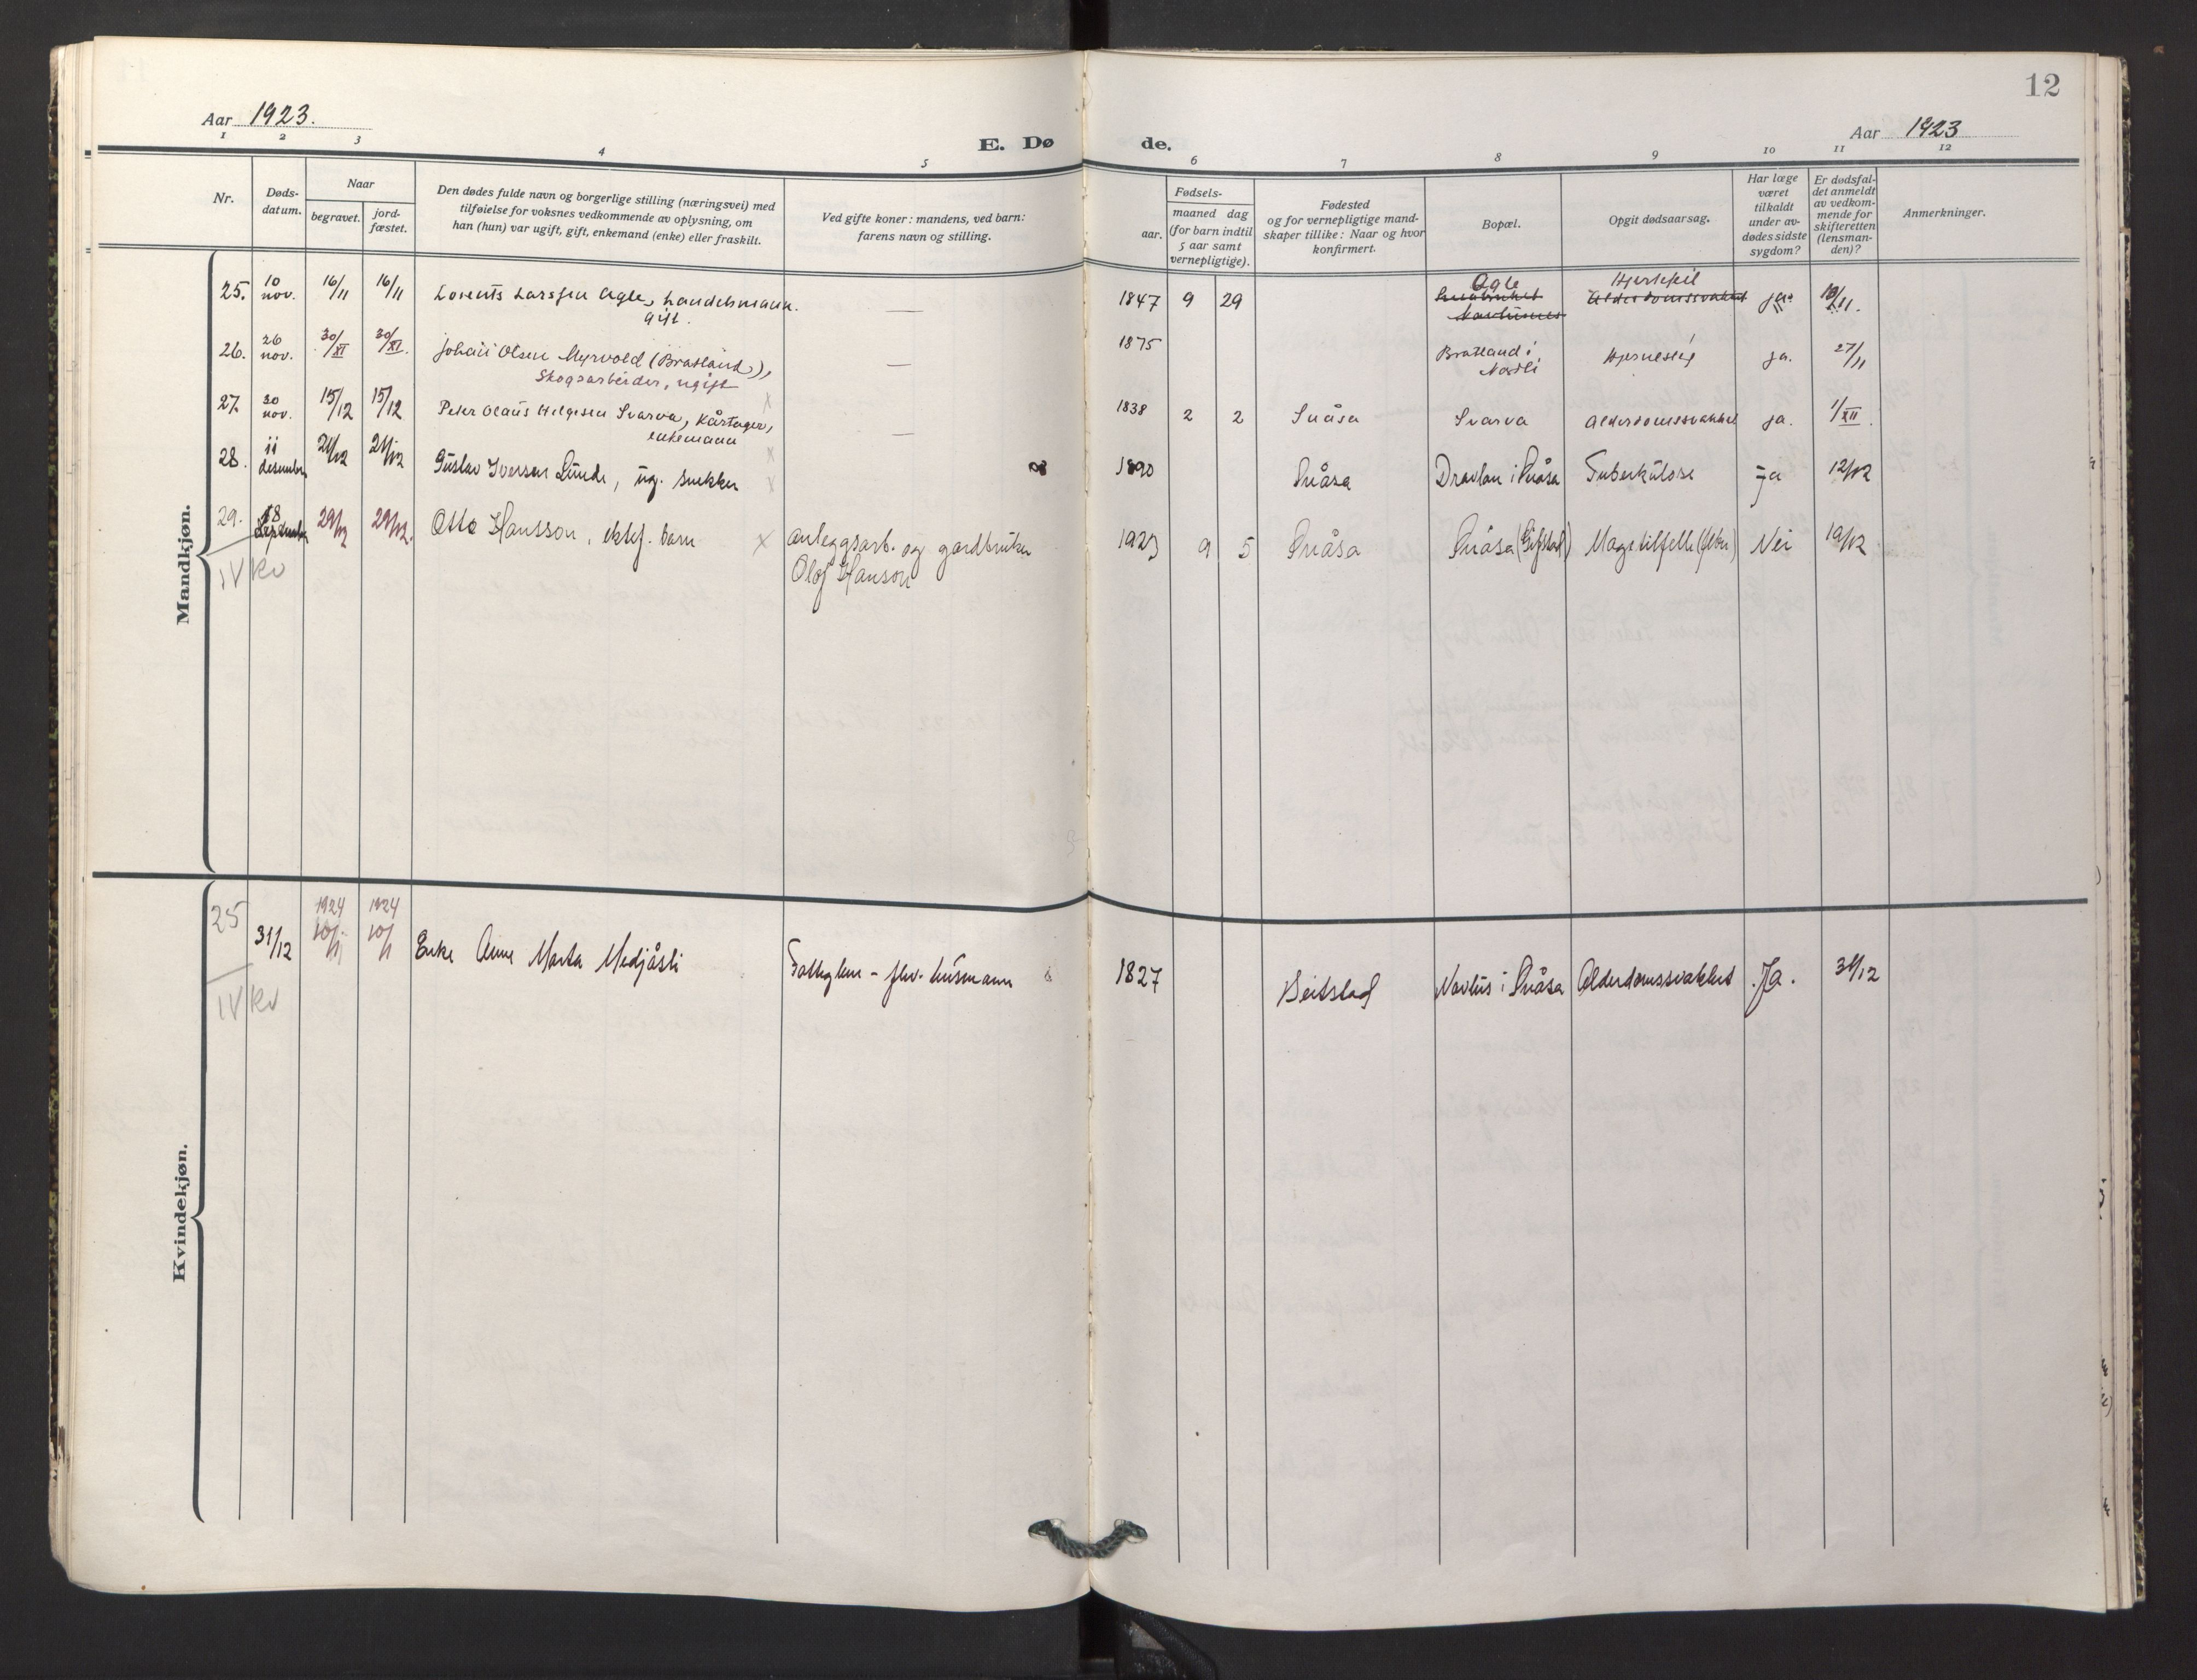 12
Aar 1923.
E. Dø de.
Aar 1923
1 2 3 4 5 6 7 8 9 10 11 12
Nr.
Døds-
datum.
Naar
begravet.
jord-
fæstet.
Den dødes fulde navn og borgerlige stilling (næringsvei) med
tilføielse for voksnes vedkommende av oplysning, om
han (hun) var ugift, gift, enkemand (enke) eller fraskilt.
Ved gifte koner: mandens, ved barn:
farens navn og stilling.
Fødsels-
aar.
maaned dag
(for barn indtil
5 aar samt
vernepligtige).
Fødested
og for vernepligtige mand-
skaper tillike: Naar og hvor
konfirmert.
Bopæl.
Opgit dødsaarsag.
Har læge
været
tilkaldt
under av-
dødes sidste
sygdom?
Er dødsfal-
det anmeldt
av vedkom-
mende for
skifteretten
(lensman-
den)?
Anmerkninger.
Mandkjøn.
25. 10 nov. 16/11 16/11 Lorents Larssen Agle, handelsmann. — 1847 9 29 Agle Hjertefeil ja. 10/11.
gift. Alderdomssvakhet
26. 26 nov. 30/XI 30/XI. Johan Olsen Myrvold (Bratland), — 1875 Bratland i Hjerneslag ja. 27/11
Skogsarbeider, ugift Nordli
27. 30 nov. 15/12 15/12 Peter Olaus Helgesen Svarva, kårtager, — 1838 2 2 Snåsa Svarva Alderdomssvakhet ja. 1/XII.
enkemann
28. 11 desember 21/12 21/12 Gustav Iversen Lunde, ug. snekker 1890 Snåsa Dravlan i Snåsa Tuberkulose ja 12/12
29. 18 desember 29/12 29/12. Otto Hansson, ektef. barn x Anleggsarb. og gardbruker 1923 9 5 Snåsa Snåsa (Gifstad) Magetilfelle Nei 19/12
IV kv Olof Hanson
Kvindekjøn.
25 31/12 1924 10/1 1924 10/1 Enke Anne Marta Medjåsli Fattiglem - fhv. husmann 1827 Beitstad Navlus i Snåsa Alderdomssvakhet Ja. 31/12
IV kv